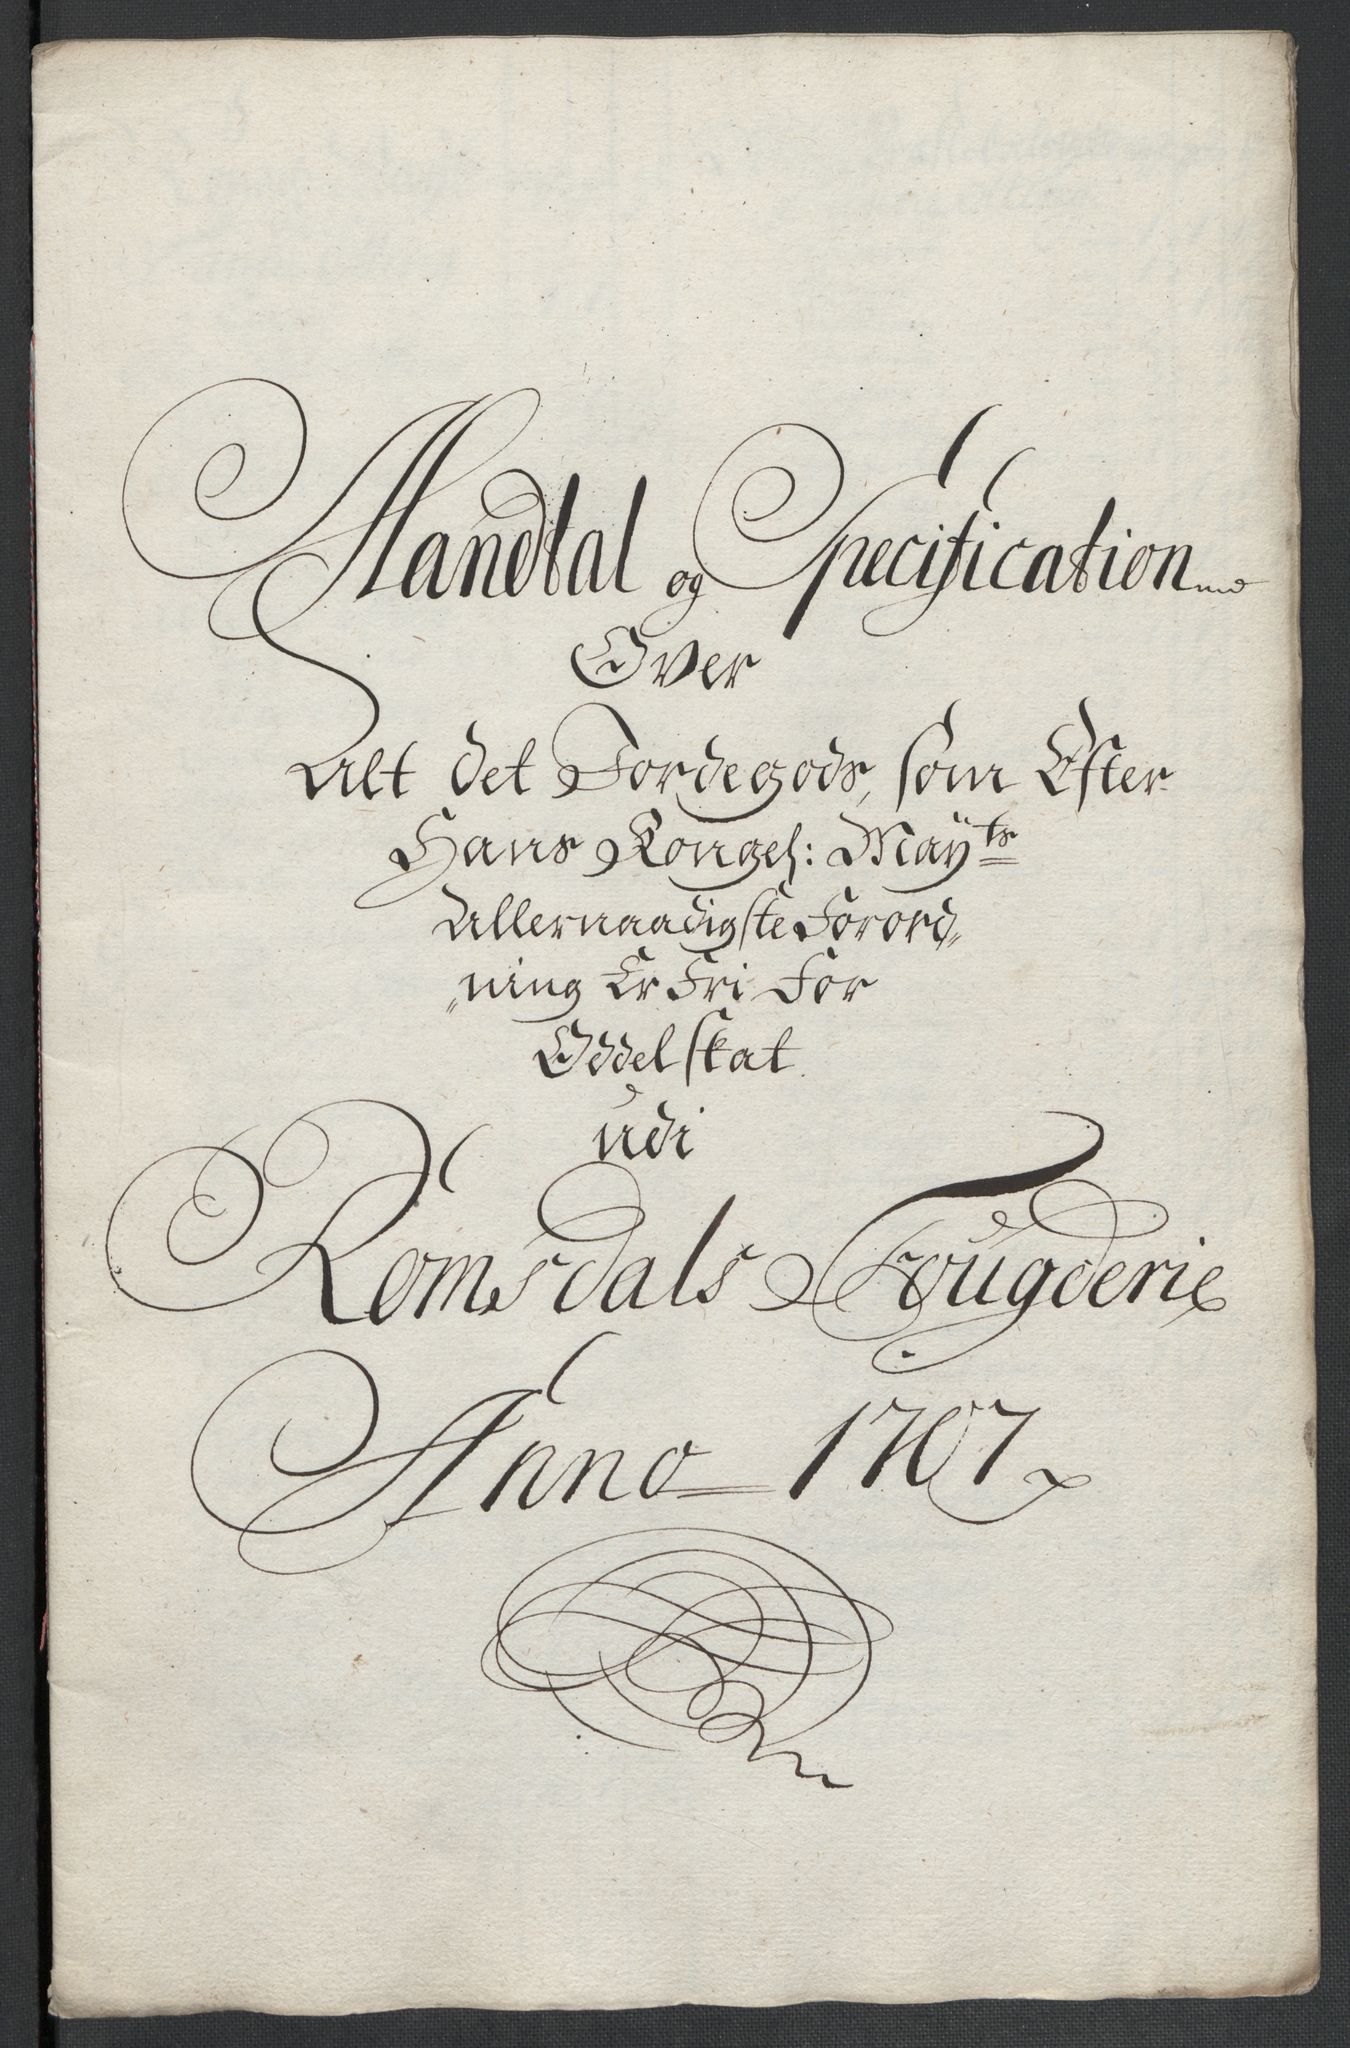 Mandtal og Specification
Over
Alt det Jordegods, som Efter
Hans Kongel: Mayts
Allernaadigste Forord„
„ning Er Fri For
Oddelskat
udi
Romsdals Fougderie
Anno 1707